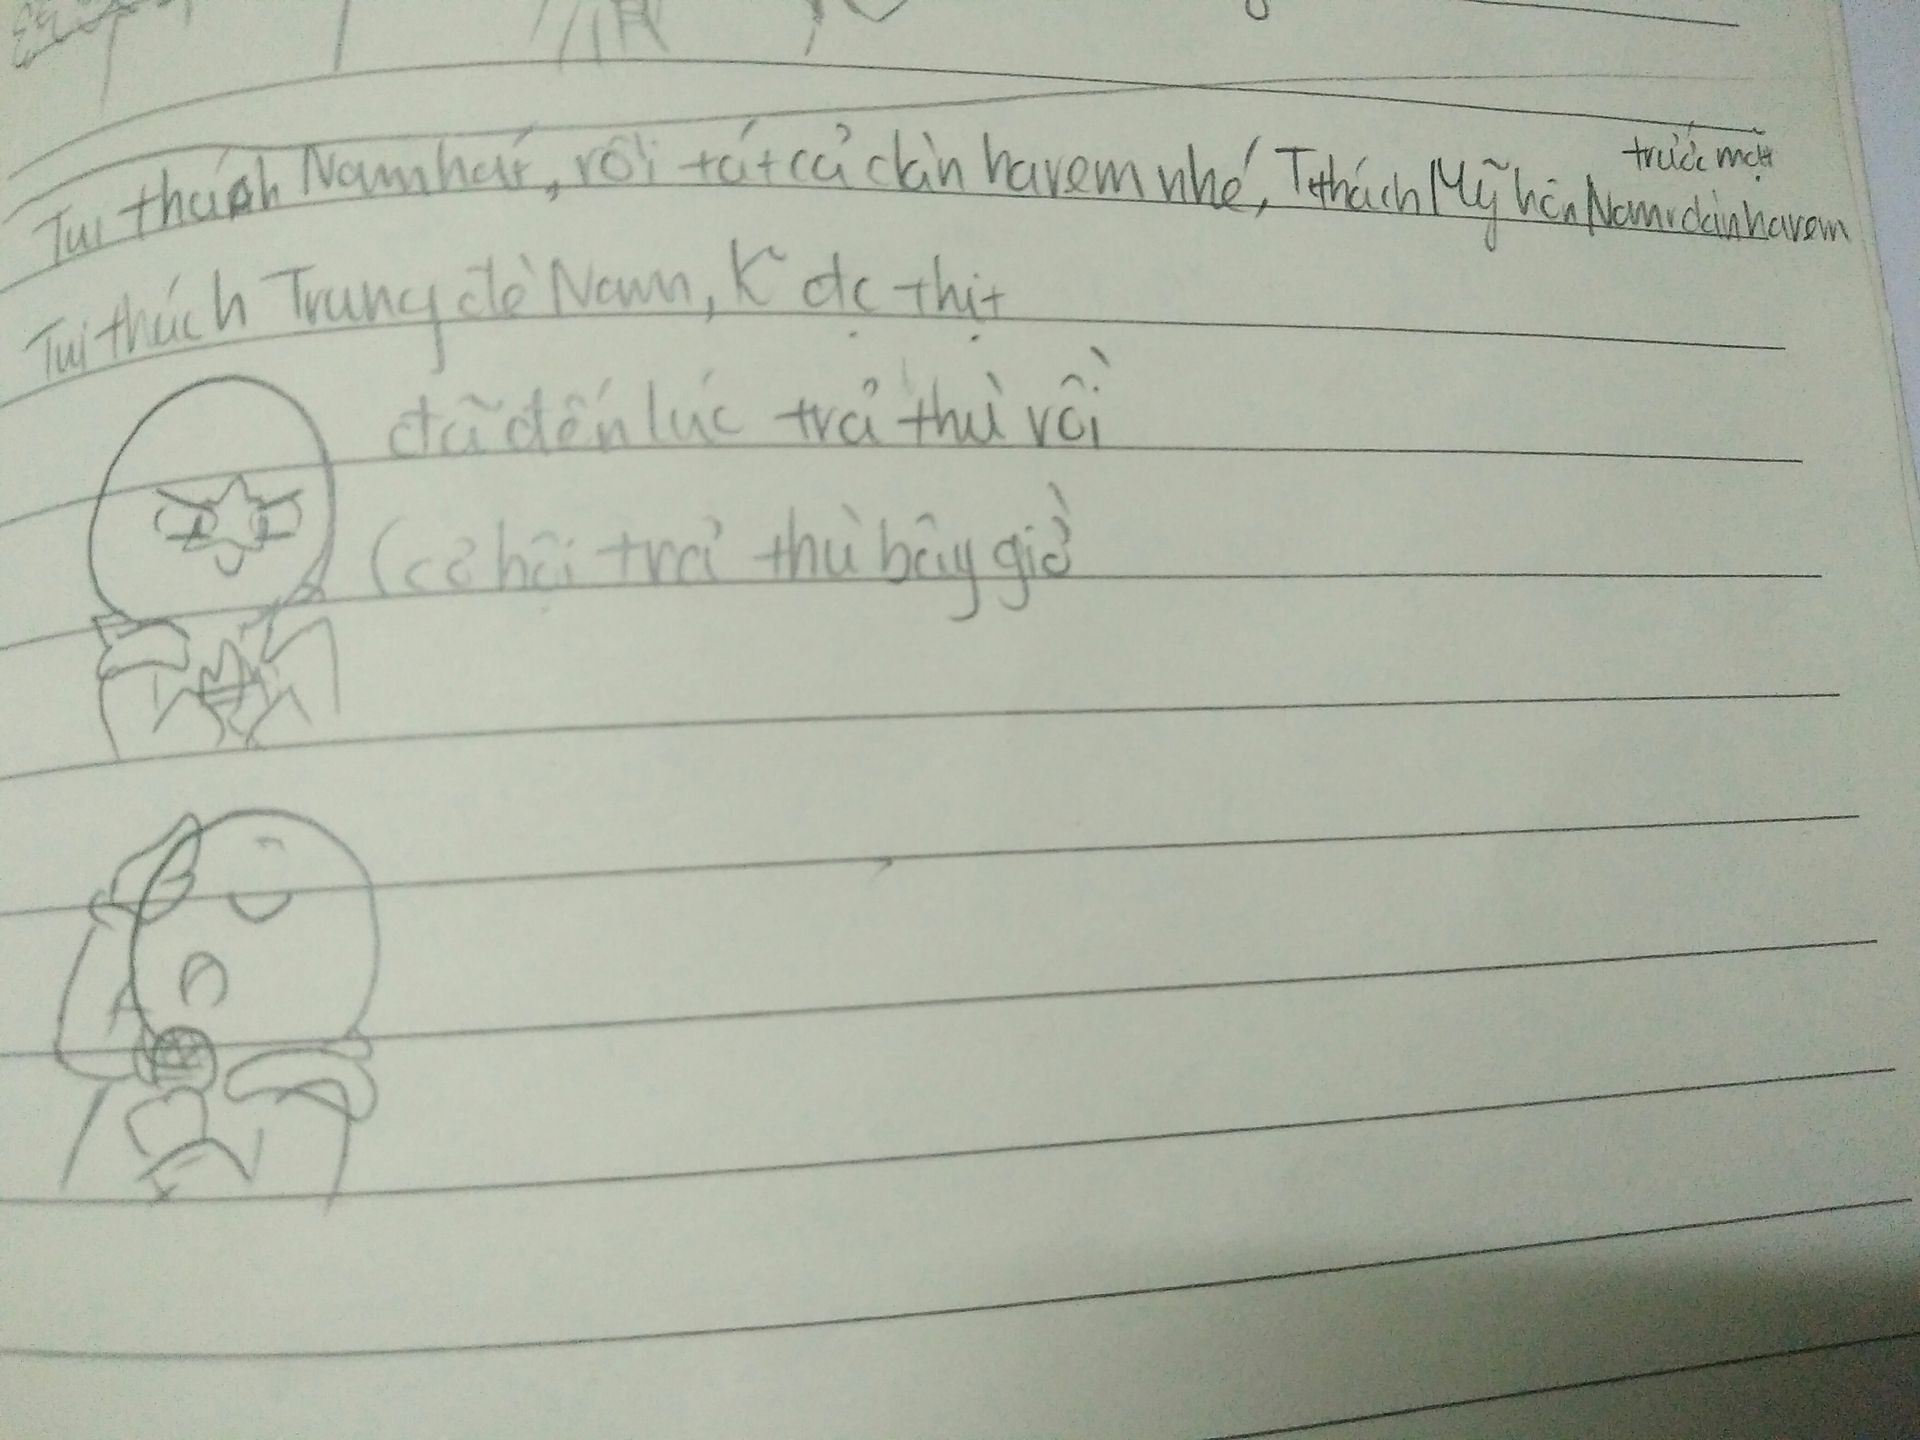 Tui thách Nam hát, rồi tất cả dàn harem nhé, T thách Mỹ hôn Nam trước mặt dàn harem
Tui thách Trung đè Nam, K đc thịt
đã đến lúc trả thù rồi
(cơ hội trả thù bây giờ